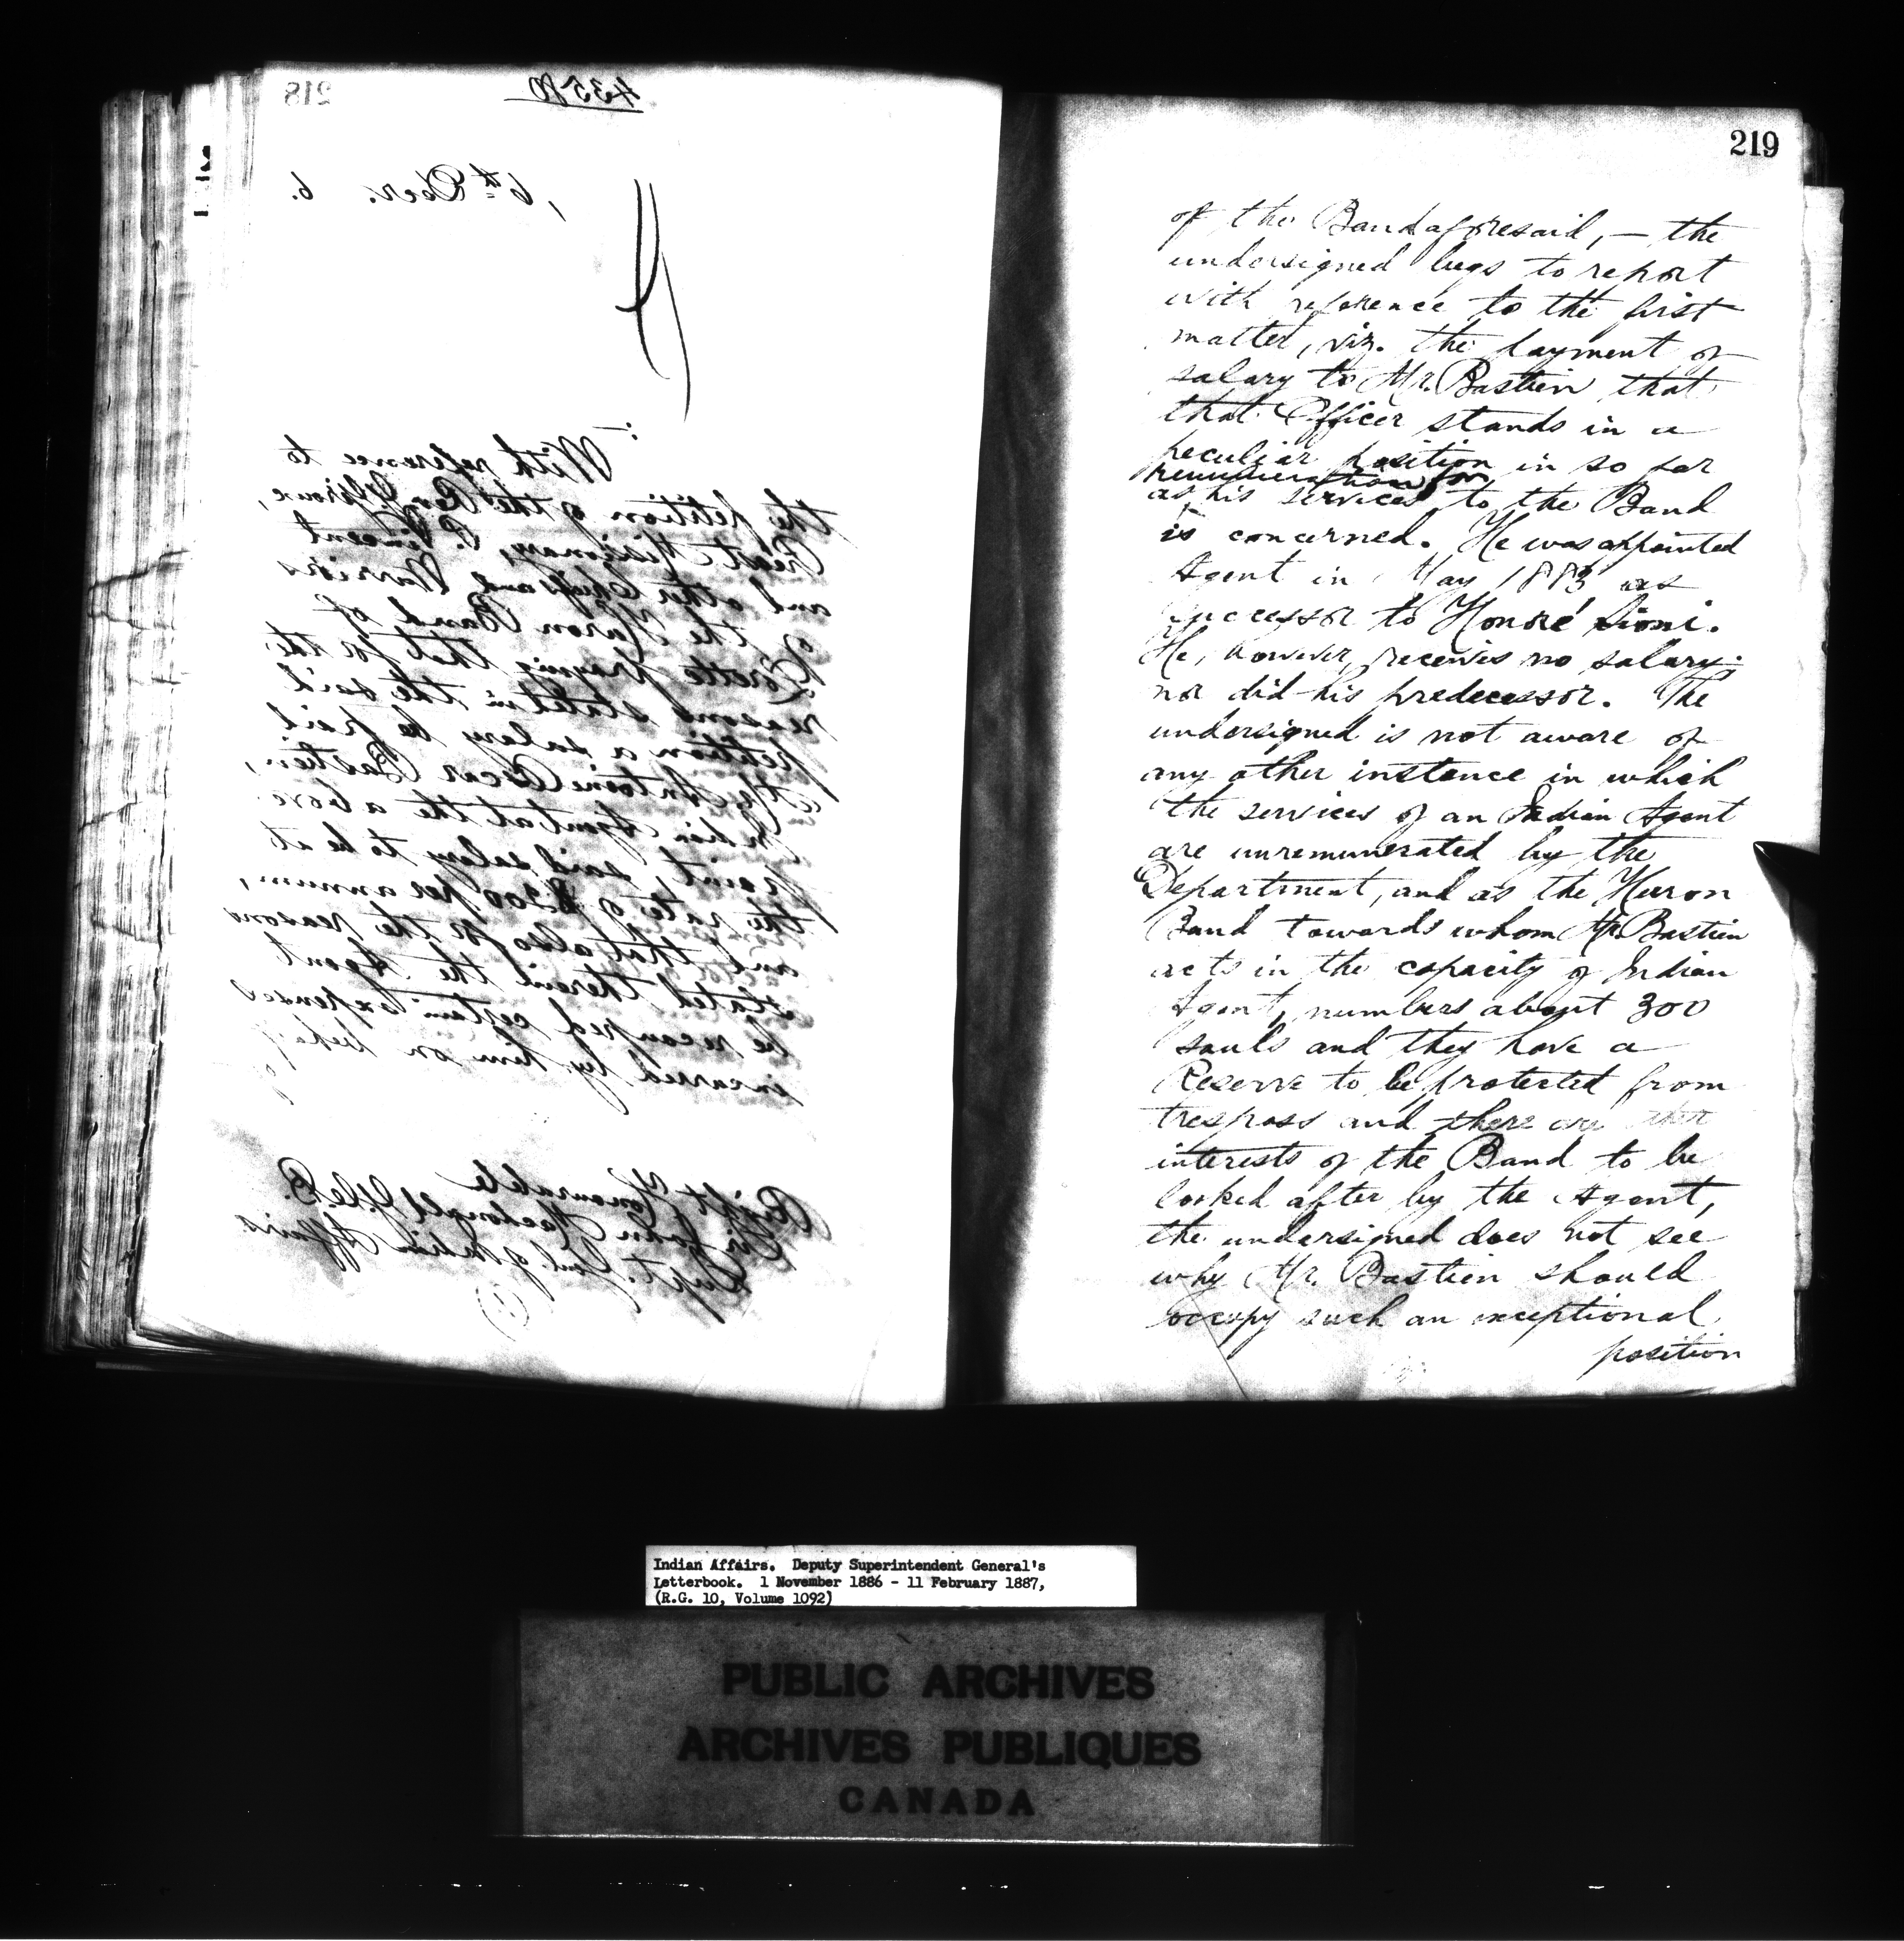 218
43570
, 6th Decr. 6.
:-
With reference to
the petition of the Rev. Giroux,
Priest Missionary, P. Vincent
and other Chiefs and Warriors
of the Huron Band of
Lorette praying that for the
reasons stated in the said
petition a salary be paid
Mr. Antoine Oscar Bastien,
Indian Agent at the above
point, said salary to be at
the rate of $200 per annum,
and that also for the reasons
stated therein the Agent
be recouped certain expenses
incurred by him on behalf
of
Right Honourable
Sir John Macdonald G.C.B.
Supt. Genl. of Indian Affairs.
(1)
219
of the Band aforesaid, — the
undersigned begs to report
with reference to the first
matter, viz. the payment of
salary to Mr. Bastien that
that Officer stands in a
peculiar position in so far
remuneration for
as his services to the Band
is concerned. He was appointed
Agent in May 1883 as
successor to Honoré Sioui.
He, however, receives no salary
nor did his predecessor. The
undersigned is not aware of
any other instance in which
the services of an Indian Agent
are unremunerated by the
Department, and as the Huron
Band towards whom Mr. Bastien
acts in the capacity of Indian
Agent, numbers about 300
souls and they have a
Reserve to be protected from
trespass and there are other
interests of the Band to be
looked after by the Agent,
the undersigned does not see
why Mr. Bastien should
occupy such an exceptional
position
Indian Affairs. Deputy Superintendent General's
Letterbook. 1 November 1886 - 11 February 1887,
(R.G. 10, Volume 1092)
PUBLIC ARCHIVES
ARCHIVES PUBLIQUES
CANADA